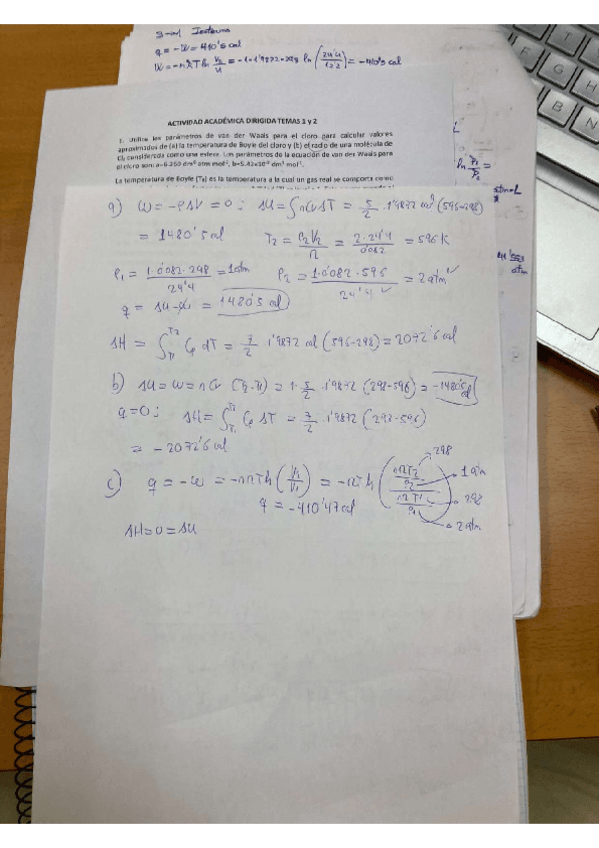 3-1 Isotermo
q = -W = 410'5 cal
W = -nRT ln V₂/V₁ = -1·1'9872·298 ln (24'4/12'2) = -410'5 cal
ACTIVIDAD ACADÉMICA DIRIGIDA TEMAS 1 y 2
1. Utilice los parámetros de van der Waals para el cloro para calcular valores
aproximados de (a) la temperatura de Boyle del cloro y (b) el radio de una molécula de
Cl₂ considerada como una esfera. Los parámetros de la ecuación de van der Waals para
el cloro son: a=6.260 dm⁶ atm mol⁻², b=5.42x10⁻² dm³ mol⁻¹.
La temperatura de Boyle (T_B) es la temperatura a la cual un gas real se comporta como
ln P₁/P₂ =
atm·L
atm
a) W = -PΔV = 0 ; ΔU = ∫nCvΔT = 5/2 · 1'9872 cal (596-298)
= 1480'5 cal T₂ = P₂V₂/R = 2·24'4/0'082 = 596 K
P₁ = 1·0'082·298/24'4 = 1 atm P₂ = 1·0'082·596/24'4 = 2 atm
q = ΔU - W = 1480'5 cal
ΔH = ∫_{T₁}^{T₂} Cp dT = 7/2 1'9872 cal (596-298) = 2072'6 cal
b) ΔU = W = nCv (T₂-T₁) = 1· 5/2 · 1'9872 (298-596) = -1480'5 cal
q = 0 ; ΔH = ∫_{T₁}^{T₂} Cp ΔT = 7/2 · 1'9872 (298-596)
= -2072'6 cal
c) q = -W = -nRT ln (V₂/V₁) = -RT ln ((nRT₂/P₂)/(nRT₁/P₁)) → 298 → 1 atm → 298 → 2 atm
q = -410'47 cal
ΔH = 0 = ΔU